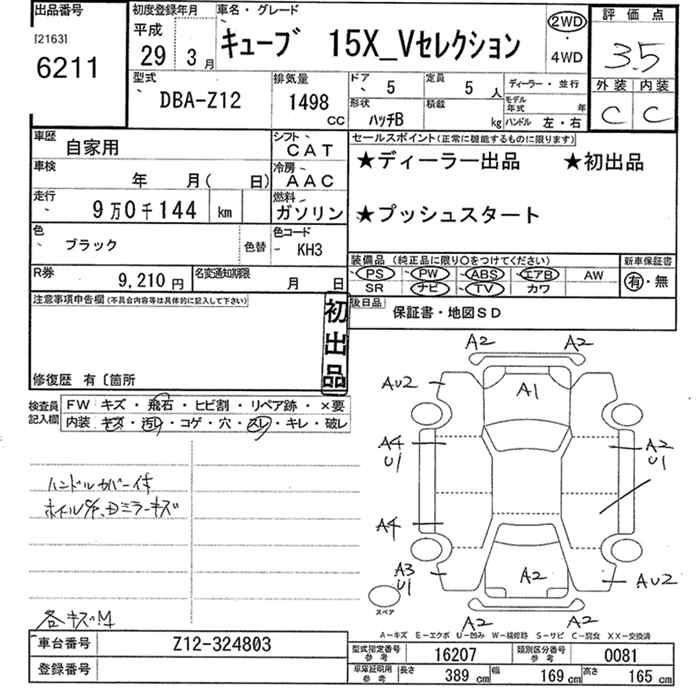 出品番号
[2163]
6211
初度登録年月
平成
29 3月
車名・グレード
キューブ 15X_Vセレクション
2WD
・
4WD
評価点
3.5
外装 内装
C C
型式
DBA-Z12
排気量
1498
CC
ドア
5
定員
5 人
ディーラー・並行
形状
ハッチB
積載
kg
モデル年式 年
ハンドル 左・右
車歴
自家用
シフト
CAT
車検
年 月( 日)
冷房
AAC
走行
9万0千144 km
燃料
ガソリン
色
ブラック
色替
色コード
KH3
R券
9,210 円
名変通知期限
月 日
セールスポイント(正常に機能するものに限ります)
★ディーラー出品 ★初出品
★プッシュスタート
装備品 (純正品に限り○をつけてください)
新車保証書
PS PW ABS エアB AW
SR ナビ TV カワ
有・無
後日品
保証書・地図SD
注意事項申告欄(不具合内容等は具体的に記入して下さい)
初出品
修復歴 有〔箇所
検査員
記入欄
FW キズ・飛石・ヒビ割・リペア跡・×要
内装 キズ・汚レ・コゲ・穴・スレ・キレ・破レ
ハンドルカバー付
各キズ凹
A2 A2
AU2 A1
A4 U1
A2 U1
A4
A3 U1
A2
AU2
スペア
A2 A2
A-キズ E-エクボ U-凹み W-補修跡 S-サビ C-腐食 XX-交換済
車台番号
Z12-324803
登録番号
型式指定番号
参考
16207
類別区分番号
参考
0081
車庫証明用
参考
長さ
389 cm
幅
169 cm
高さ
165 cm